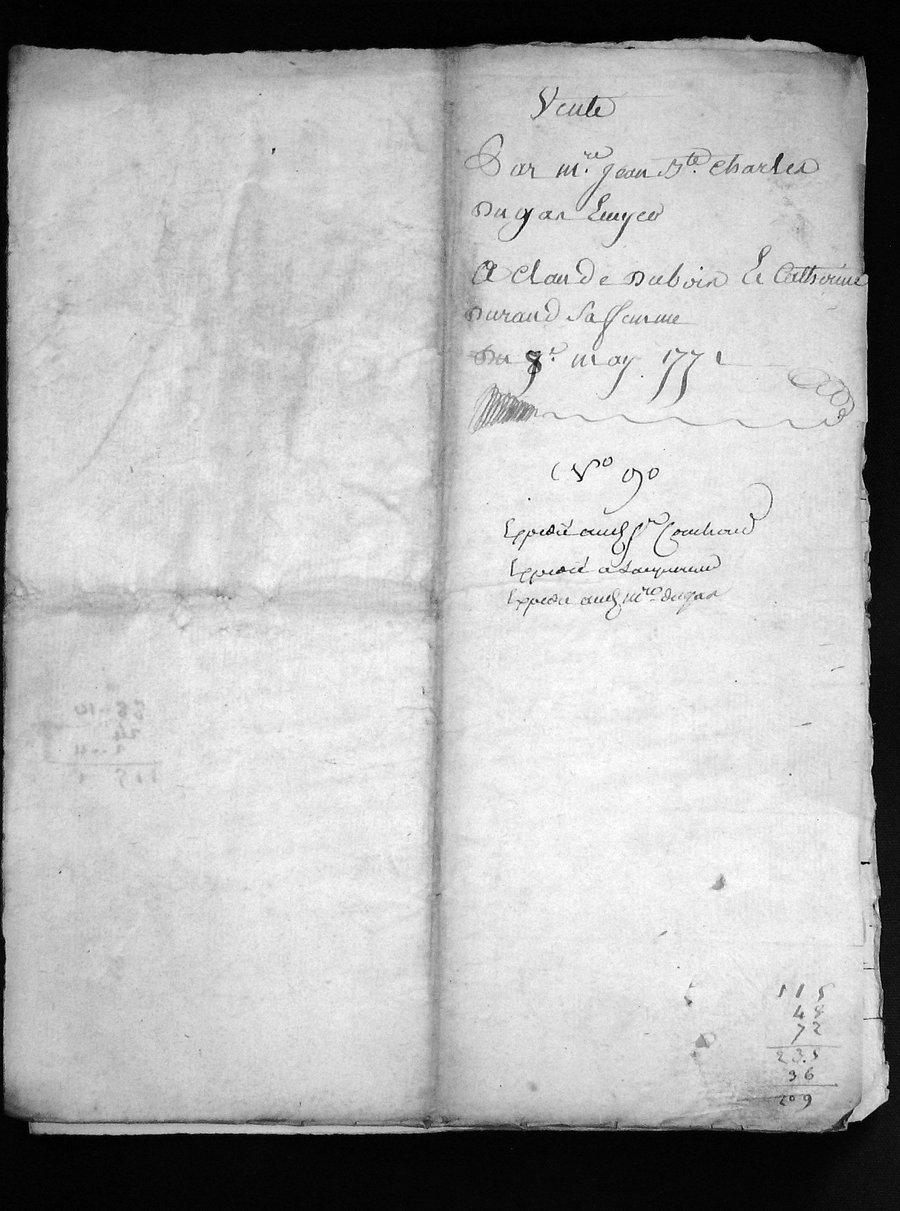 Vente
Par mre. Jean Bte. Charles
Dugas Ecuyer
A Claude Duboin Et Catherine
Durand Sa femme
Du 8e. may 1771
No 90
Expedié aud Sr
Expedié a
Expedié aud mre. dugas
115
48
72
235
36
209